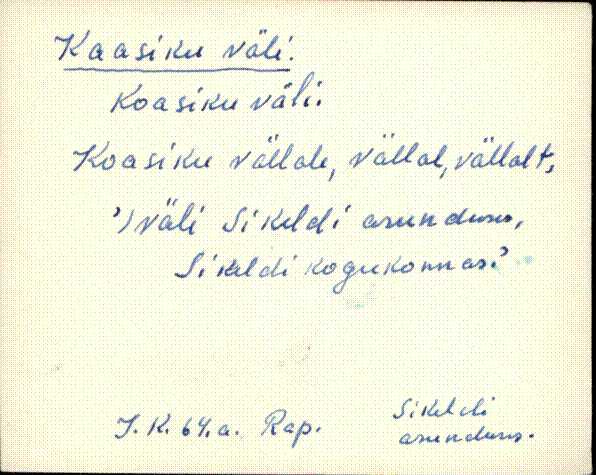 Kaasiku väli.
Koasiku väli.
Koasiku vällale, vällal, vällalt,
') väli Sikeldi asunduses,
Sikeldi kogukonnas.'
J. K. 64. a. Rap.
Sikeldi
asunduses.